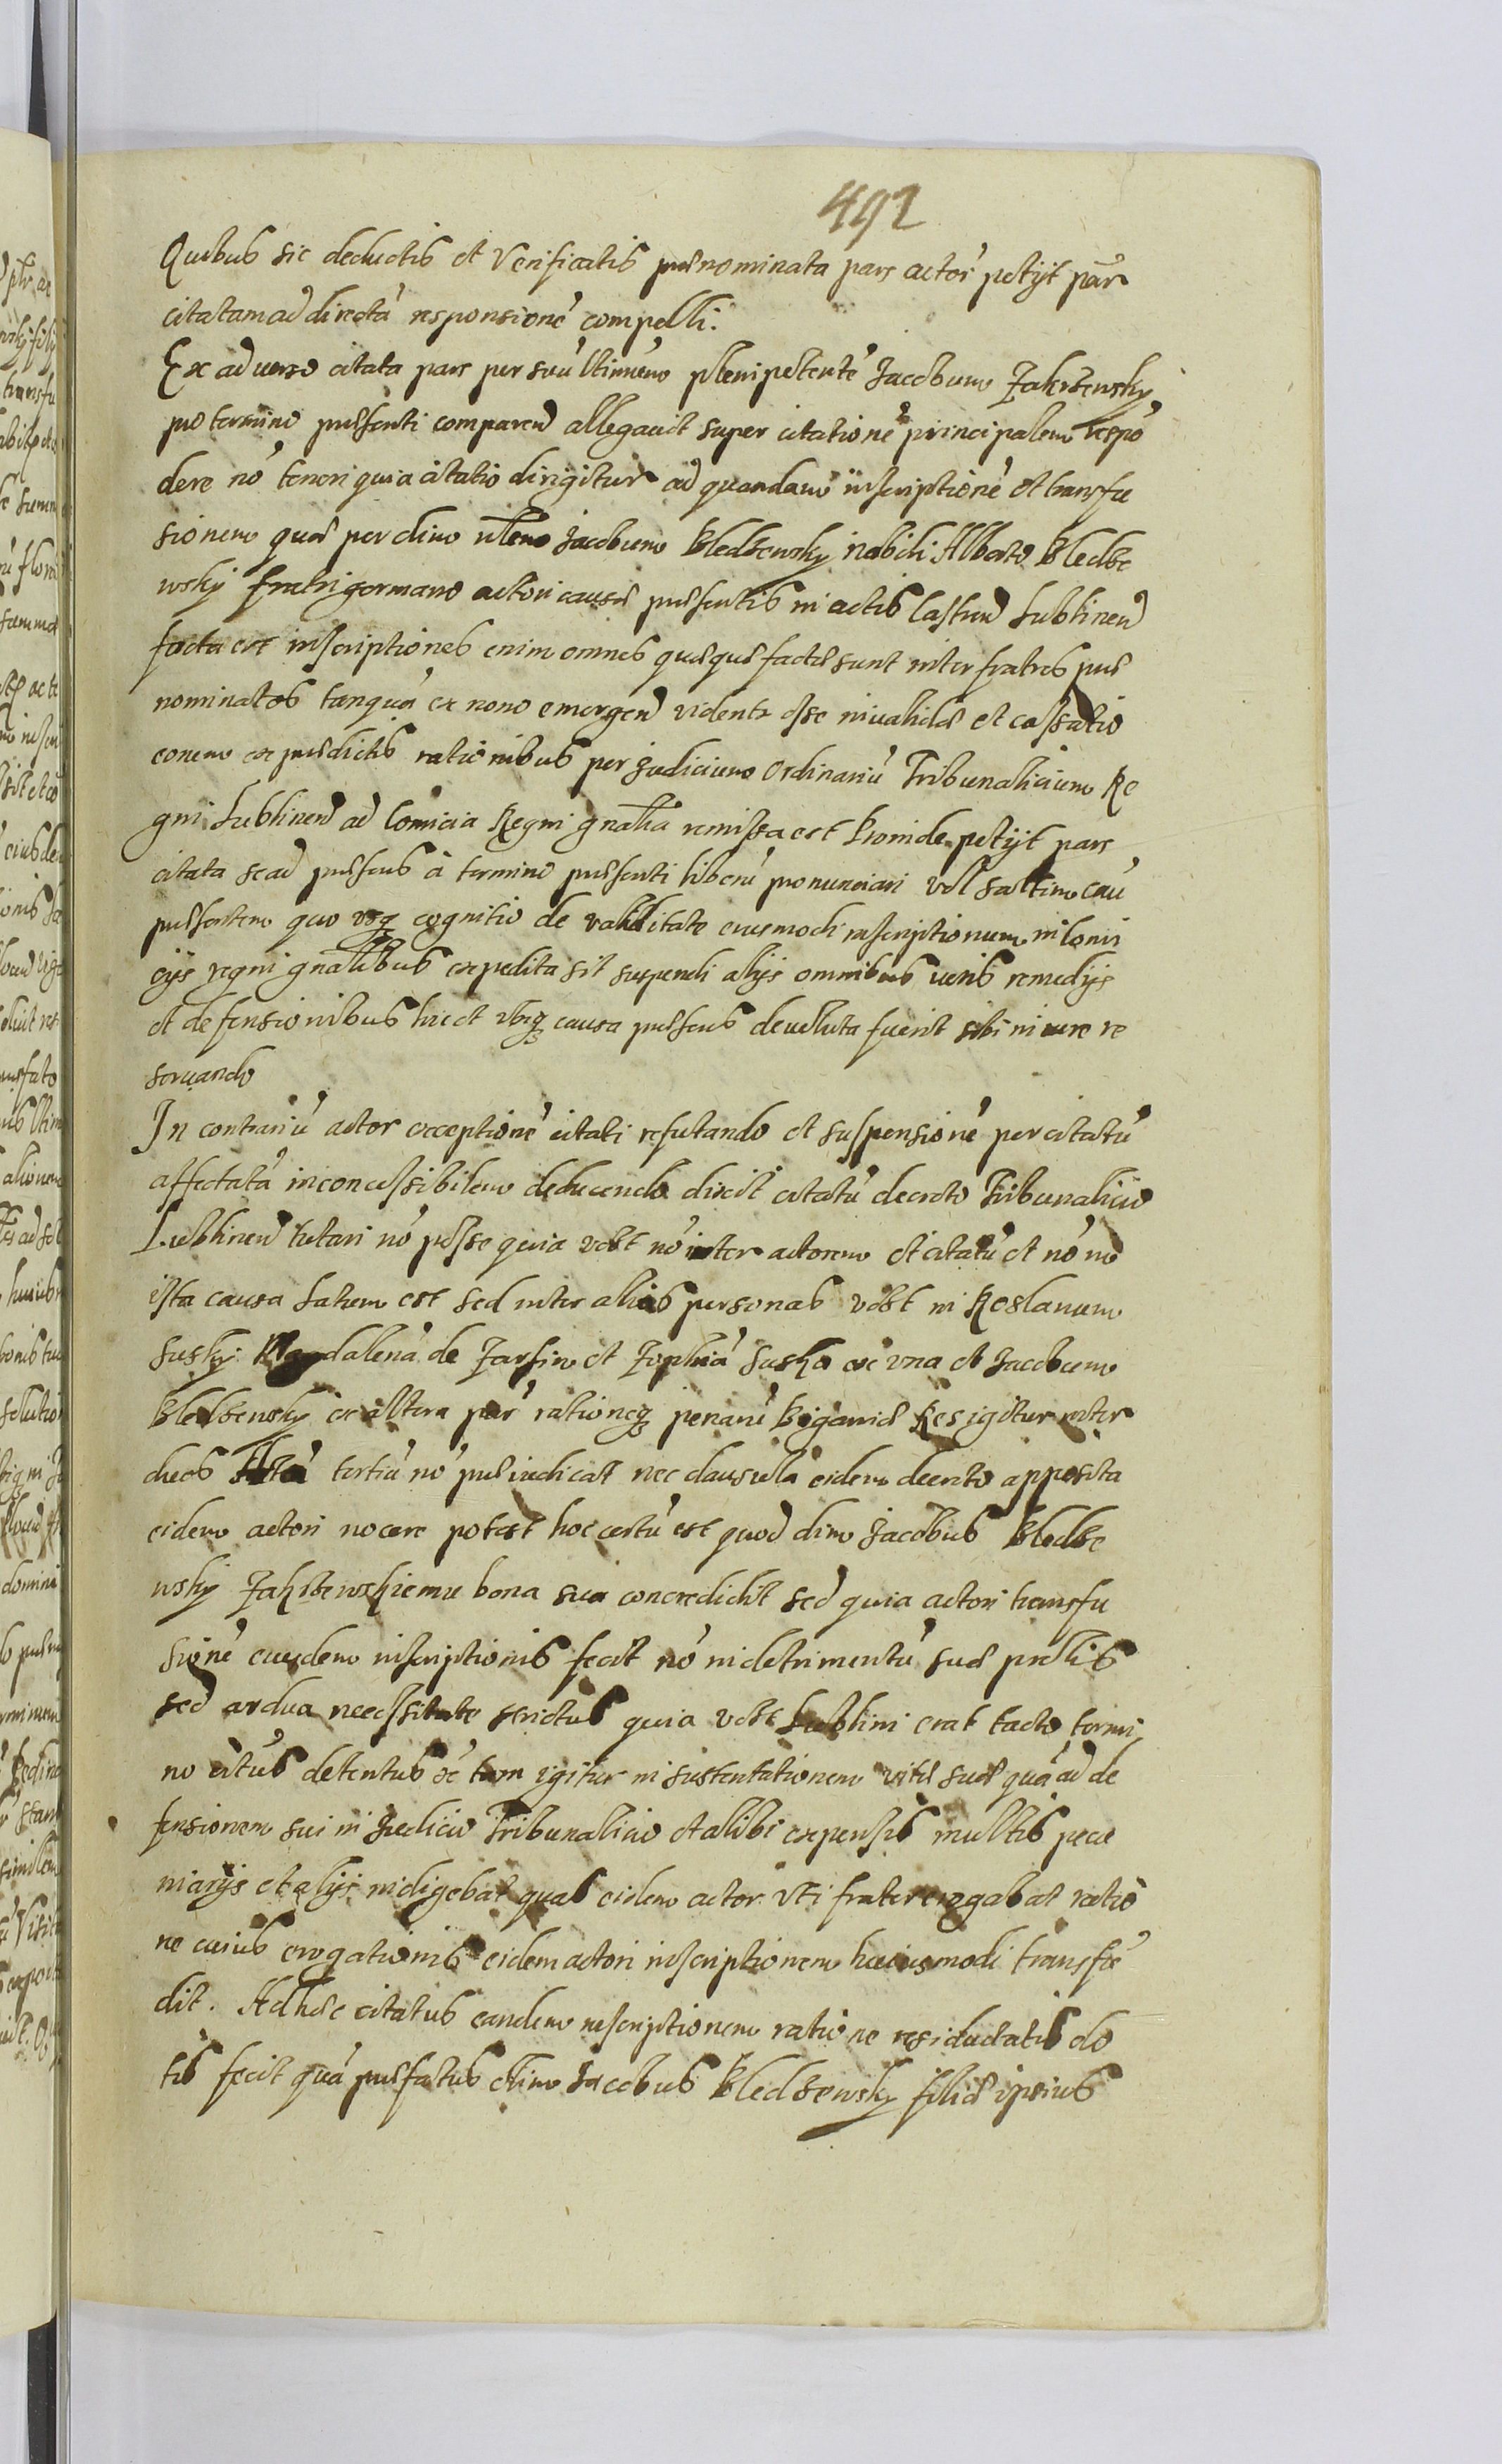 492
Quibus sic deductis et Verificatis praenominata pars actoř petÿt par̃
citatam ad directā responsionē compelli.
Ex aduerso citata pars per suū ltimũm plenipotentē Jacobum Zakrzewsky
pro termino praesenti comparen̄ allegauit super citationē principalem respō
dere nō teneri quia citatio dirigitur ad quandam inscriptionē et transfu
sionem quae per olim nb̃lem Jacobum Bledzewsky nobili Alberto Bledze
wsky fratri germano actori causae praesentis in actis Castren̄ Lublinen̄
facta est inscriptiones enim omnes quaequae factae sunt inter fratres prae
nominatos tanquā ex nono emergen̄ videntr esse inualidae et cassatio
eonem ex praedictis rationibus per Judicium Ordinariū Tribunalicium Re
gni Lublinen̄ ad Comicia Regni gnãlia remissa est Proinde petÿt pars
citata se ad praesens à termino praesenti liberū pronunciari vel saltim cau
praesentem quo vsq cognitio de validitate eiusmodi inscriptionum in Comi
cÿs regni gnãlibus expedita sit suspendi alÿs omnibus iuris remedÿs
et defensionibus huc et vbiq causa praesens deuoluta fuerit sibi in iure re
seruando
In contrariū actor exceptionē citati refutando et suspensionē per citatū
affectatā inconcessibilem deducendo dixit citatū decreto Tribunalicio
Lublinen̄ tutari nō posse quia vtpt nō inter actorem et citatū et nō in
ista causa latum est sed inter alias personas vtpt in Reslanum
Susky Magdalenā de Jarsin et Zophiā Suska ex vna et Jacobum
Bledzewsky ex altera par̃ rationeq penarū Bigamiae Res igitur inter
duos Acta tertiū nō praeiudicat nec clausula eidem decreto apposita
eidem actori nocere potest hoc certū est quod olim Jacobus Bledze
wsky Zakrzewskiemu bona sua concredidit sed quia actori transfu
sionē eiusdem inscriptionis fecit nō in detrimentū suae prolis
sed ardua necessitate strictus quia vtpt Lublini erat tacto termi
no citūs detentus ēc tam igitur in sustentationem vitae suae quā ad de
fensionem sui in Judicio Tribunalicio et alibi expensis multis pecu
niarÿs et alÿs indigebat quas eidem actor vti frater erogabat ratio
ne cuius erogationis eidem actori inscriptionem huiusmodi transfu
dit. Ad haec citatus eandem inscriptionem ratione residuitatis do
tis fecit quā praefatus olim Jacobus Bledzewsky filiae ipsius